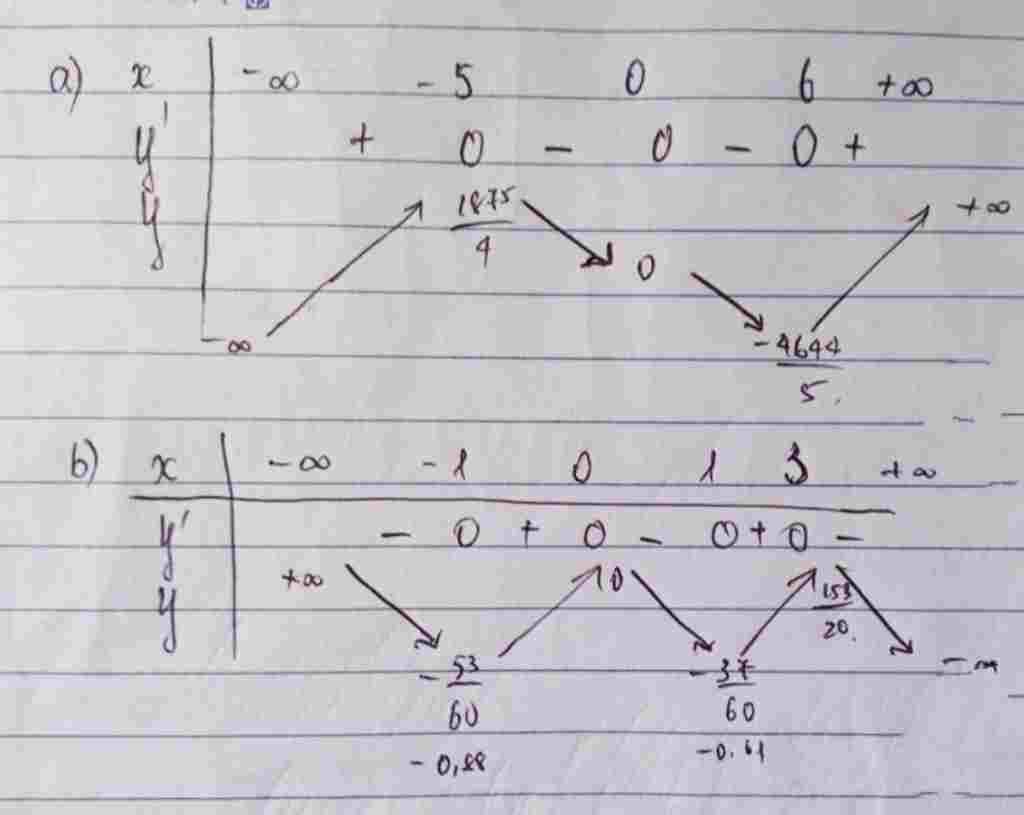 a) x -∞ -5 0 6 +∞
y' + 0 - 0 - 0 +
y 1875/4 0 +∞
-∞ -4644/5.
b) x -∞ -1 0 1 3 +∞
y' - 0 + 0 - 0 + 0 -
y +∞ 0 153/20.
-53/60 -37/60 -∞
-0,88 -0.61